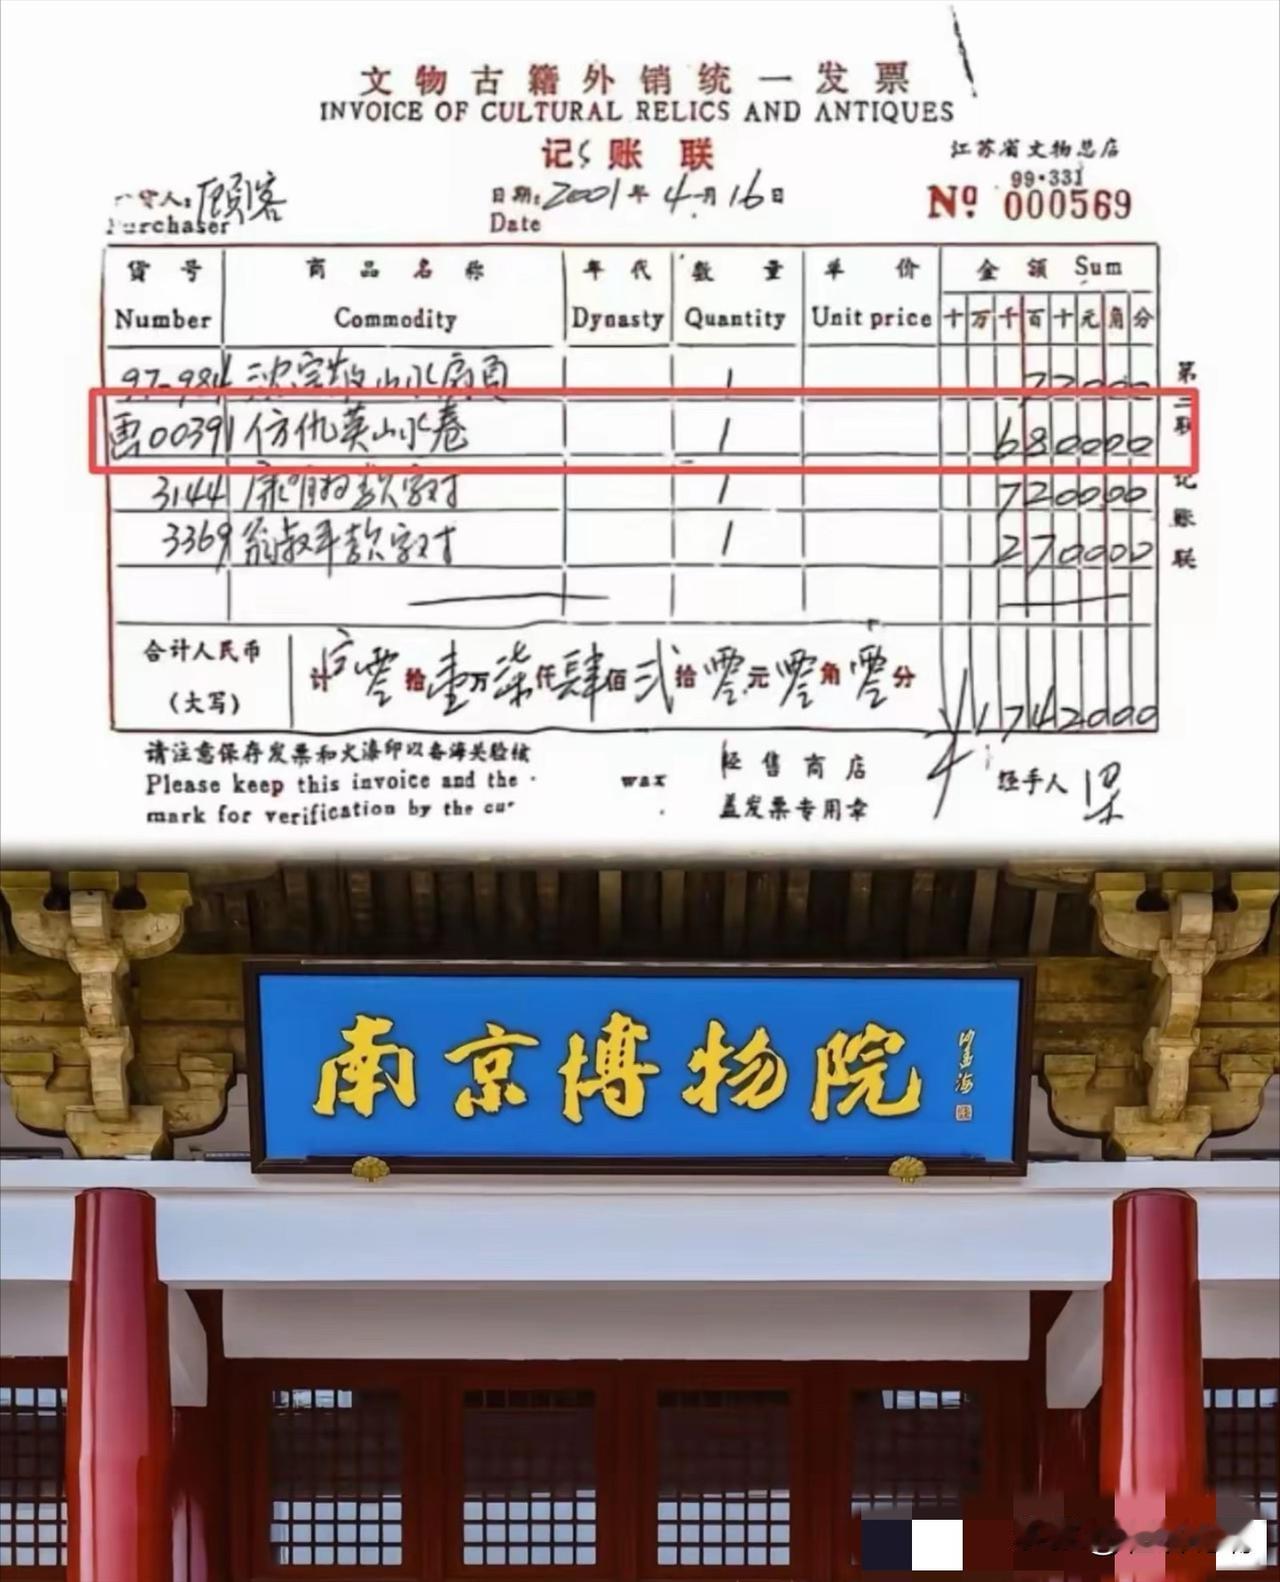 文物古籍外销统一发票
INVOICE OF CULTURAL RELICS AND ANTIQUES
记账联
江苏省文物总店
99·331
货人:顾客
Purchaser
日期:2001年4月16日
Date
Nº 000569
货号 商品名称 年代 数量 单价 金额 Sum
Number Commodity Dynasty Quantity Unit price 十万千百十元角分
97-984 山水扇面 1 72000
画00391 仿仇英山水卷 1 680000
3144 款字对 1 720000
3369 翁叔平款字对 1 270000
第二联 记账联
合计人民币 计 零拾壹万柒仟肆佰弍拾零元零角零分
(大写) 1742000
请注意保存发票和火漆印以备海关验核
Please keep this invoice and the wax
mark for verification by the cu
经售商店
盖发票专用章
经手人 梁
南京博物院
沙孟海